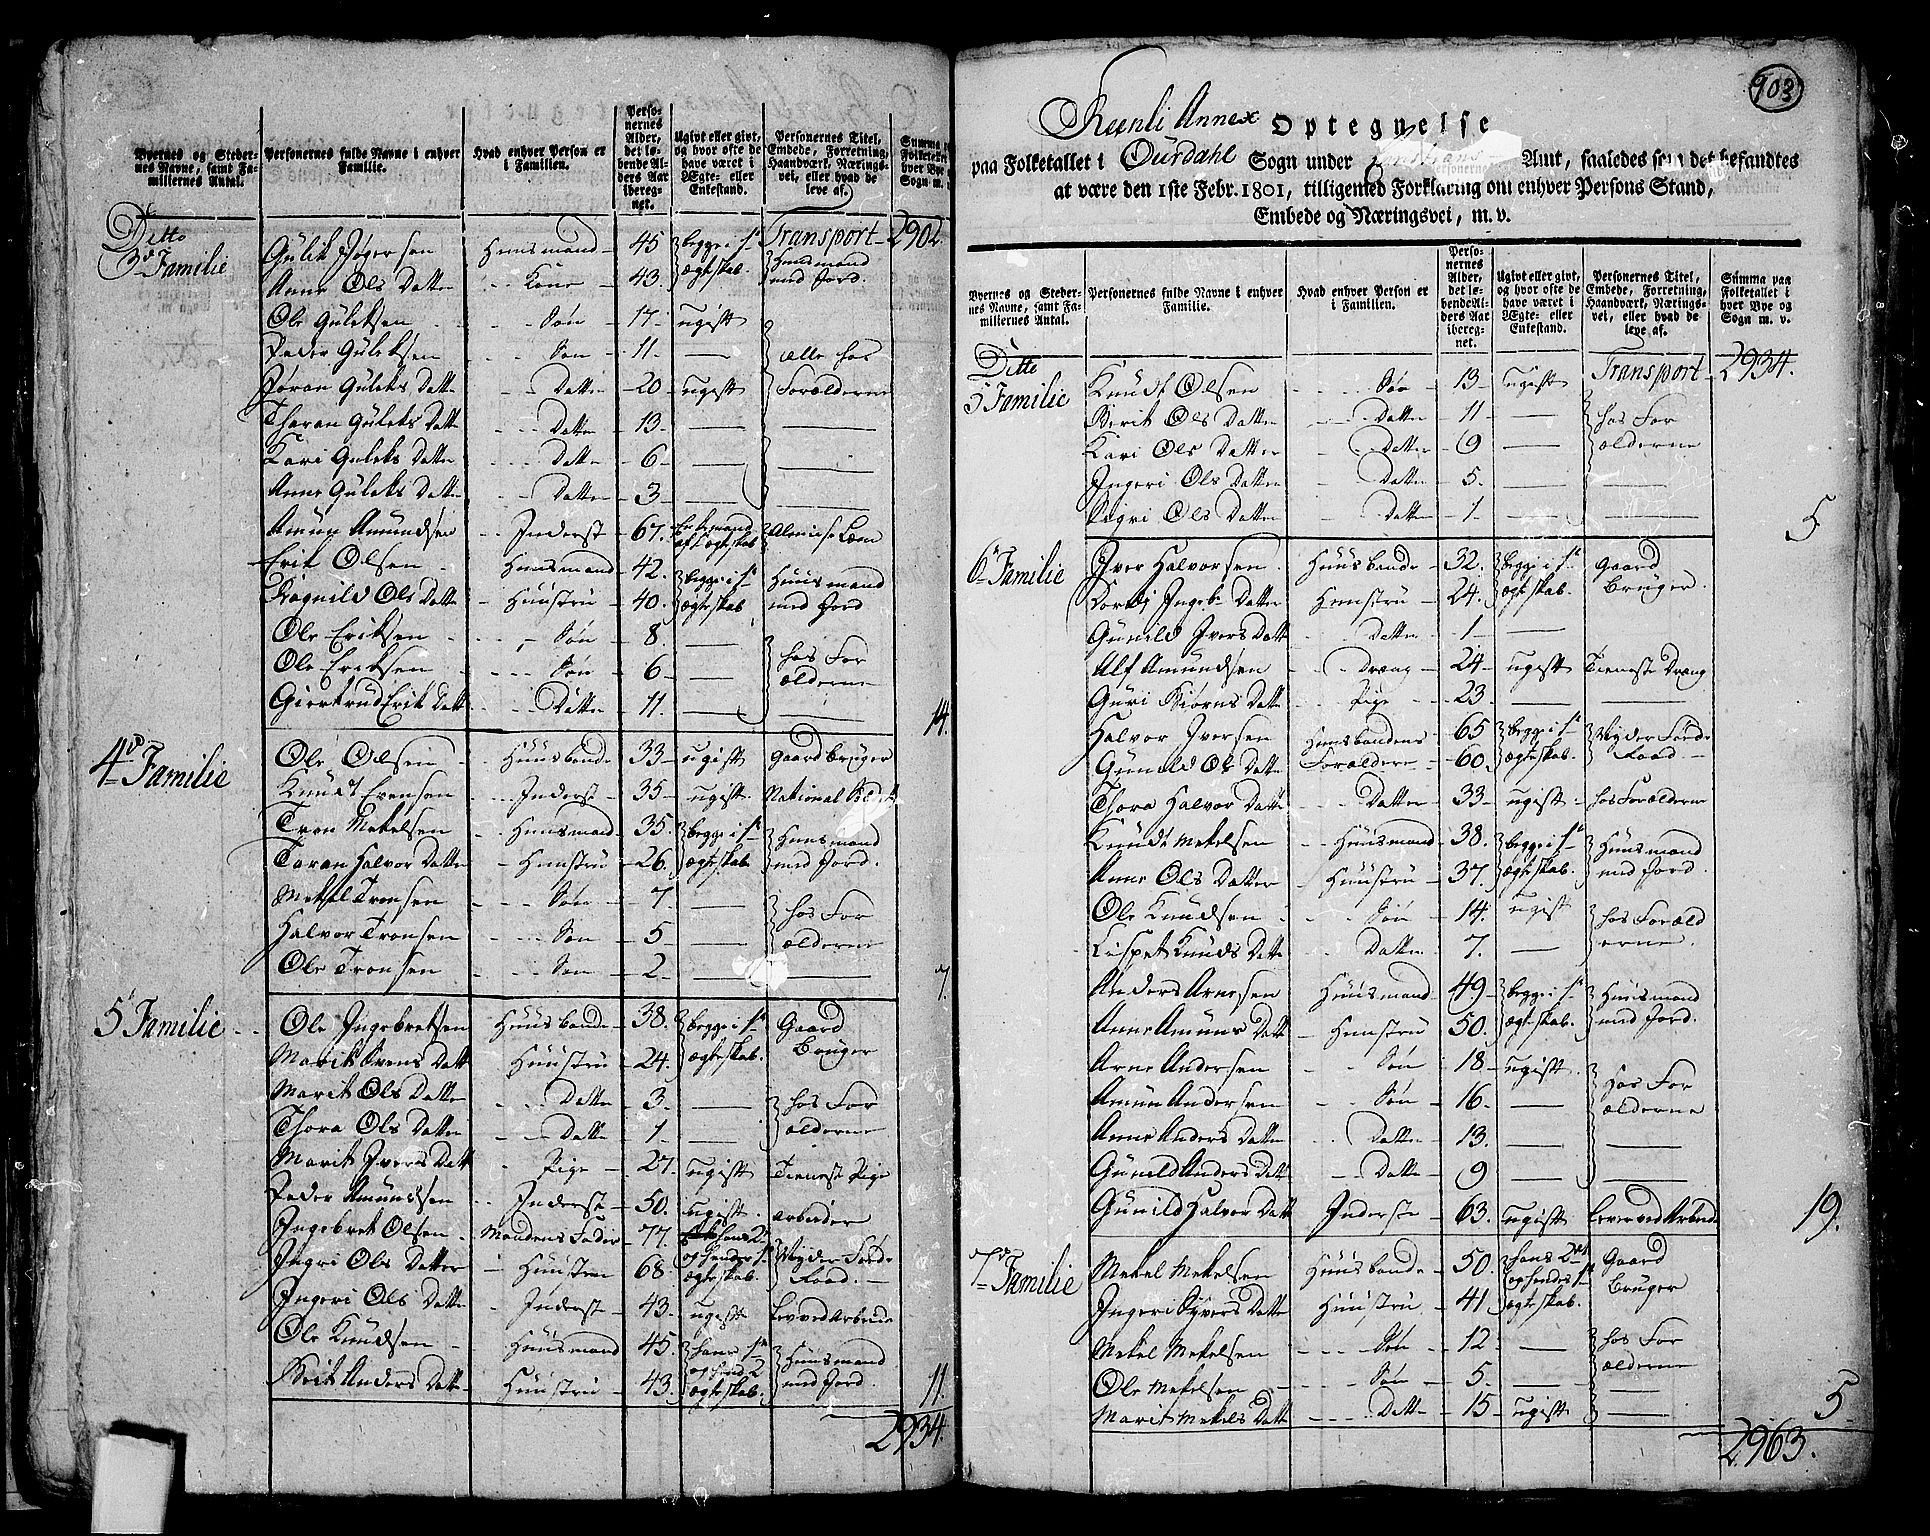 Byernes og Stedernes Navne, samt Familiernes Antal.
Personernes fulde Navne i enhver Familie.
Hvad enhver Person er i Familien.
Personernes Alder, det løbende Alders Aar iberegnet.
Ugivt eller givt, og hvor ofte de have været i Ægte- eller Enkestand.
Personernes Titel, Embede, Forretning, Haandværk, Næringsvei, eller hvad de leve af.
Summa Folketallet hver Bye Sogn m.
Transport 2902.
Ditto
3de Familie
Gulik Jøgersen Huusmand 45 begge i 1ste ægteskab. Huusmand med Jord.
Anne Ols Datter Kone 43.
Ole Guleksen Søn 17. ugift
Peder Guleksen Søn 11. alle hos
Jøran Guleks Datte Datte 20 ugift Forælderne
Tharan Guleks Datte Datte 13
Kari Guleks Datte Datte 6
Anne Guleks Datte Datte 3
Amun Amundsen Inderst 67. Enkemand af 1 ægteskab Almisse Lem
Erik Olsen Huusmand 42. begge i 1ste ægteskab Huusmand med Jord
Ragnild Ols Datte Huustru 40.
Ole Eriksen Søn 8 hos For
Ole Eriksen Søn 6 ælderne
Giertrud Erik Datt Datte 11. 14.
4de Familie
Ole Olsen Huusbonde 33 ugift Gaard Bruger
Knudt Evensen Inderst 35 ugift National Soldat
Tron Mekelsen Huusmand 35. begge i 1ste ægteskab Huusmand med Jord.
Taran Halvor Datte Huustru 26.
Mekel Tronsen Søn 7 hos For
Halvor Tronsen Søn 5 ælderne
Ole Tronsen Søn 2 7.
5te Familie
Ole Ingebretsen Huusbonde 38. begge i 1ste ægteskab. Gaard Bruger
Marit Svens Datt Huustru 24.
Marit Ols Datte Datte 3. hos For
Thora Ols Datte Datte 1 ælderne
Marit Ivers Datt Pige 27. ugift Tieneste Pige
Peder Amundsen Inderst 50. ugift. arbeider
Ingebret Olsen Mandens Fader 77. hans 2 og hendes 1ste ægteskab. Nyder Føde Raad.
Ingri Ols Datter Huustru 68.
Ingeri Ols Datte Inderst 43. ugift Lev ved Arbeide
Ole Knudsen Huusmand 45. hans 1ste og hend 2 ægteskab Huusmand med Jord.
Berit Anders Datt Huustru 43. 11.
2934.
903
Reenli Annex Optegnelse
paa Folketallet i Ourdahl Sogn under Christians Amt, saaledes som det befandtes
at være den 1ste Febr. 1801, tilligemed Forklaring om enhver Persons Stand,
Embede og Næringsvei, m. v.
Byernes og Stedernes Navne, samt Familiernes Antal.
Personernes fulde Navne i enhver Familie.
Hvad enhver Person er i Familien.
Personernes Alder, det løbende Alders Aar iberegnet.
Ugivt eller givt, og hvor ofte de have været i Ægte- eller Enkestand.
Personernes Titel, Embede, Forretning, Haandværk, Næringsvei, eller hvad de leve af.
Summa paa Folketallet i hver Bye og Sogn m. v.
Transport 2934.
Ditto
5 Familie
Knudt Olsen Søn 13 ugift
Berit Ols Datte Datte 11 hos For
Kari Ols Datter Datter 9 ælderne
Ingeri Ols Datter Datte 5.
Sigri Ols Datter Datte 1 5
6te Familie
Iver Halvorsen Huusbonde 32. begge i 1ste ægteskab. Gaard Bruger
Ingeb Datter Huustru 24.
Gunild Ivers Datt Datte 1
Alf Amundsen Dreng 24 ugift Tieneste Dreng
Guri Biørns Datte Pige 23
Halvor Iversen Huusbondens Forældere 65 begge i 1ste ægteskab. Nyder Føde Raad.
Gunild Ols Datte 60.
Thora Halvor Datte Datter 33 ugift hos Forælderne
Knudt Mekelsen Huusmand 38. begge i 1ste ægteskab. Huusmand med Jord.
Anne Ols Datter Huustru 37.
Ole Knudsen Søn 14. ugift hos Foræld
Lispet Knuds Datte Datte 7. erne.
Anders Arnesen Huusmand 49 begge i 1ste ægteskab. Huusmand med Jord.
Anne Amuns Datt Huustru 50.
Arne Andersen Søn 18 ugift. hos For
Amun Andersen Søn 16. ælderne
Anne Anders Datte Datte 13.
Gunild Anders Datt Datte 9
Gunild Halvor Datt Inderste 63. ugift Lever ved Arbeide 19.
7de Familie
Mekel Mekelsen Huusbonde 50. hans 2det og hendes 1ste ægteskab. Gaard Bruger
Ingeri Syvers Datte Huustru 41
Mekel Mekelsen Søn 12 hos For
Ole Mekelsen Søn 5. ælderne
Marit Mekels Datt Datte 15 ugift 5
2963.